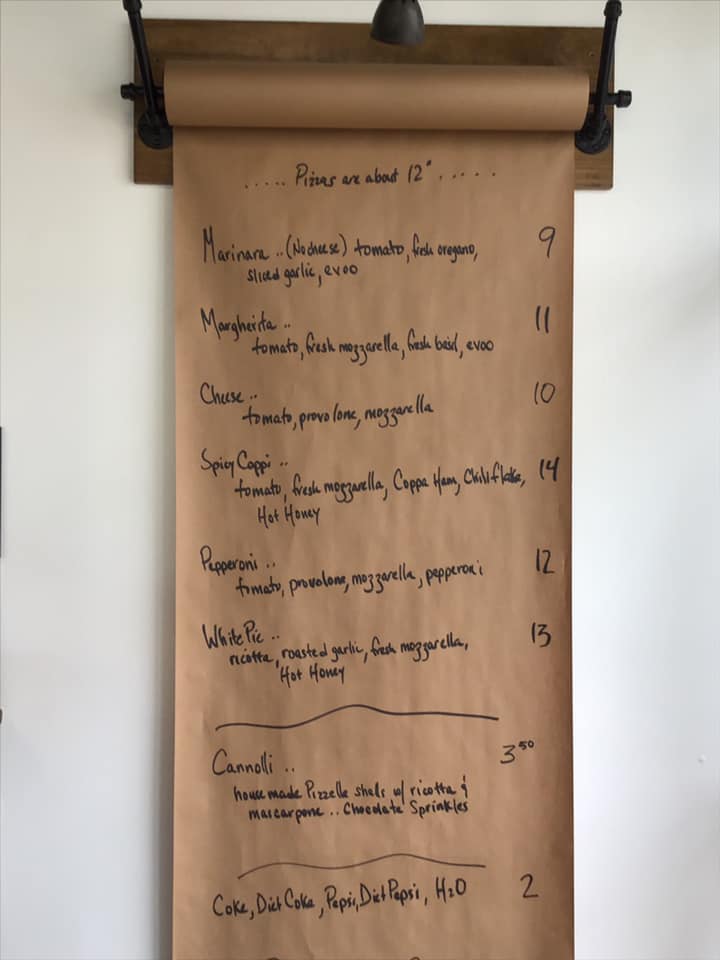 ..... Pizzas are about 12" .....
Marinara .. (No cheese) tomato, fresh oregano, 9
sliced garlic, evoo
Margherita .. 11
tomato, fresh mozzarella, fresh basil, evoo
Cheese .. 10
tomato, provolone, mozzarella
Spicy Coppi .. 14
tomato, fresh mozzarella, Coppa Ham, Chili flake,
Hot Honey
Pepperoni .. 12
tomato, provolone, mozzarella, pepperoni
White Pie .. 13
ricotta, roasted garlic, fresh mozzarella,
Hot Honey
Cannolli .. 3⁵⁰
house made Pizzelle shells w/ ricotta &
mascarpone .. Chocolate Sprinkles
Coke, Diet Coke, Pepsi, Diet Pepsi, H2O 2